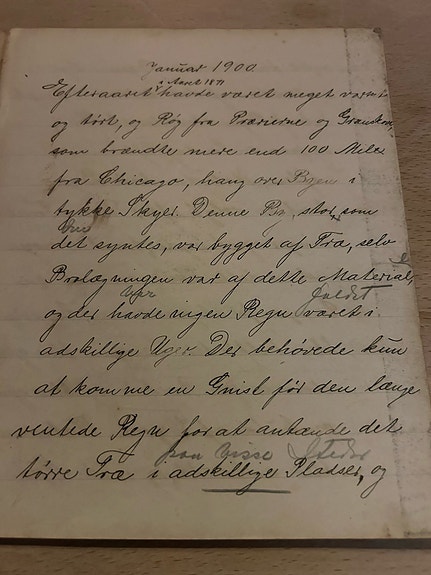 Januar 1900
i Aaret 1871
Efteraaret havde været meget varmt
og tørt, og Røg fra Prærierne og
som brændte mere end 100 Mile
fra Chicago, hang over Byen i
tykke Skyer. Denne By, stor som
den
det syntes, var bygget af Træ, selv
Brolægningen var af dette Material,
var faldet
og der havde ingen Regn været i
adskillige Uger. Der behøvede kun
at komme en Gnist før den længe
ventede Regn for at antænde det
paa visse Steder
tørre Træ i adskillige Pladser, og